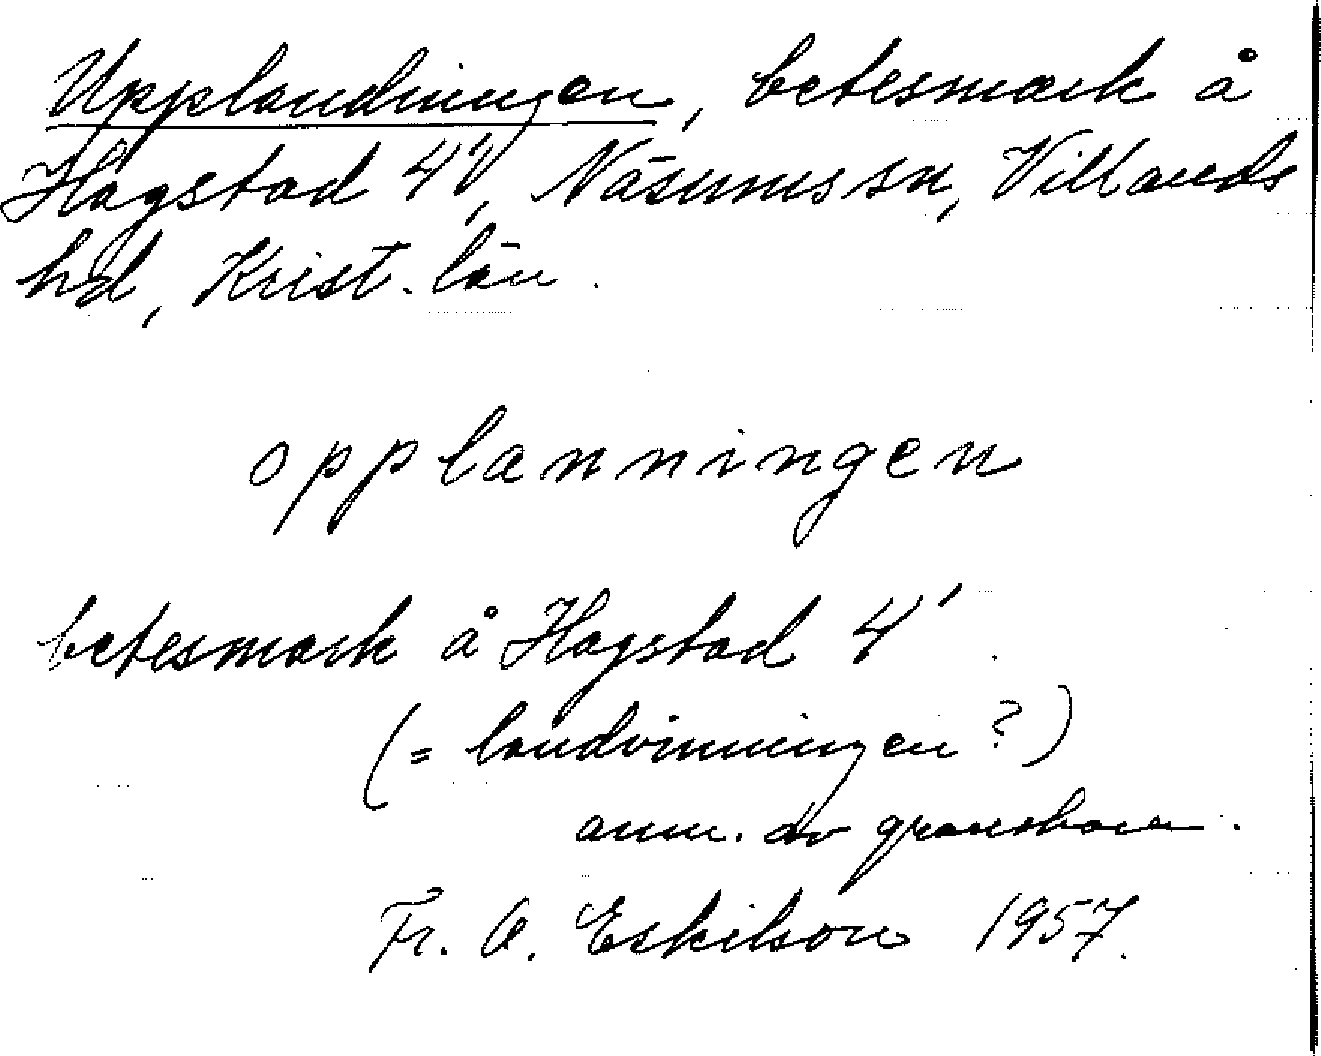 Upplandningen, betesmark å
Hagstad 4', Näsums sn, Villands
hd, Krist. län.
opplanningen
betesmark å Hagstad 4'.
(= landvinningen ?)
anm. av granskaren.
Fr. O. Eskilson 1957.